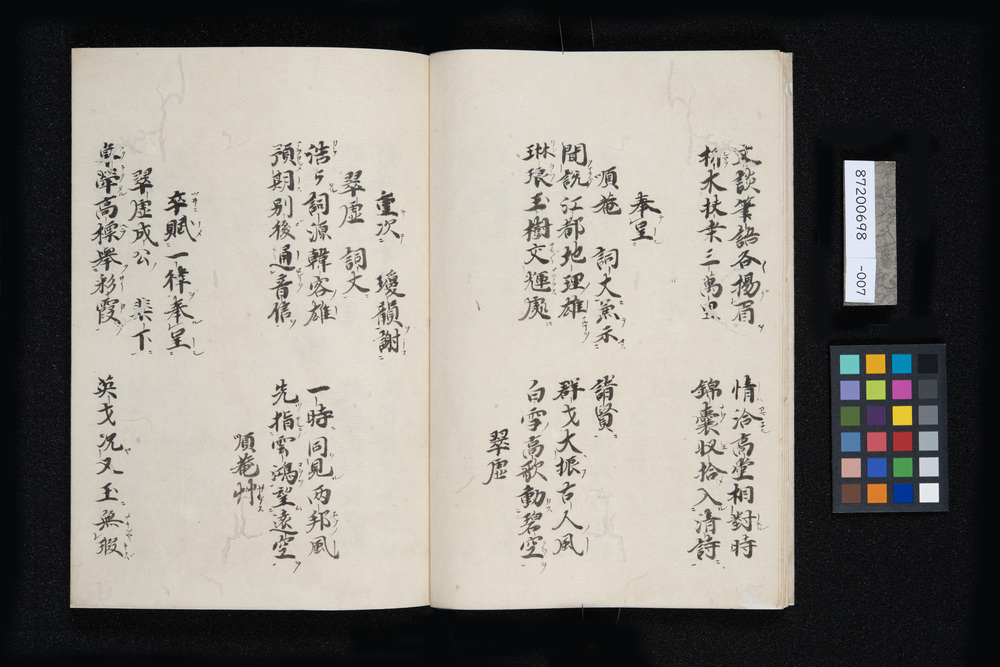 文談筆語各揚眉 情洽高堂相對時
析木扶桒三萬里 錦囊収拾入清詩
奉呈
順菴 詞丈兼示 諸賢
聞說江都地理雄 群才大振古人風
琳琅玉樹交輝處 白雪高歌動碧空
翠虚
重次 瓊韻謝
翠虚 詞丈
浩々詞源韓客雄 一時同見两邦風
預期别後通音信 先指雲鴻望遠空
順菴艸
卒賦一律奉呈
翠虚成公 榘下
高標舉彩霞 英才况又玉無瑕
87200698
-007